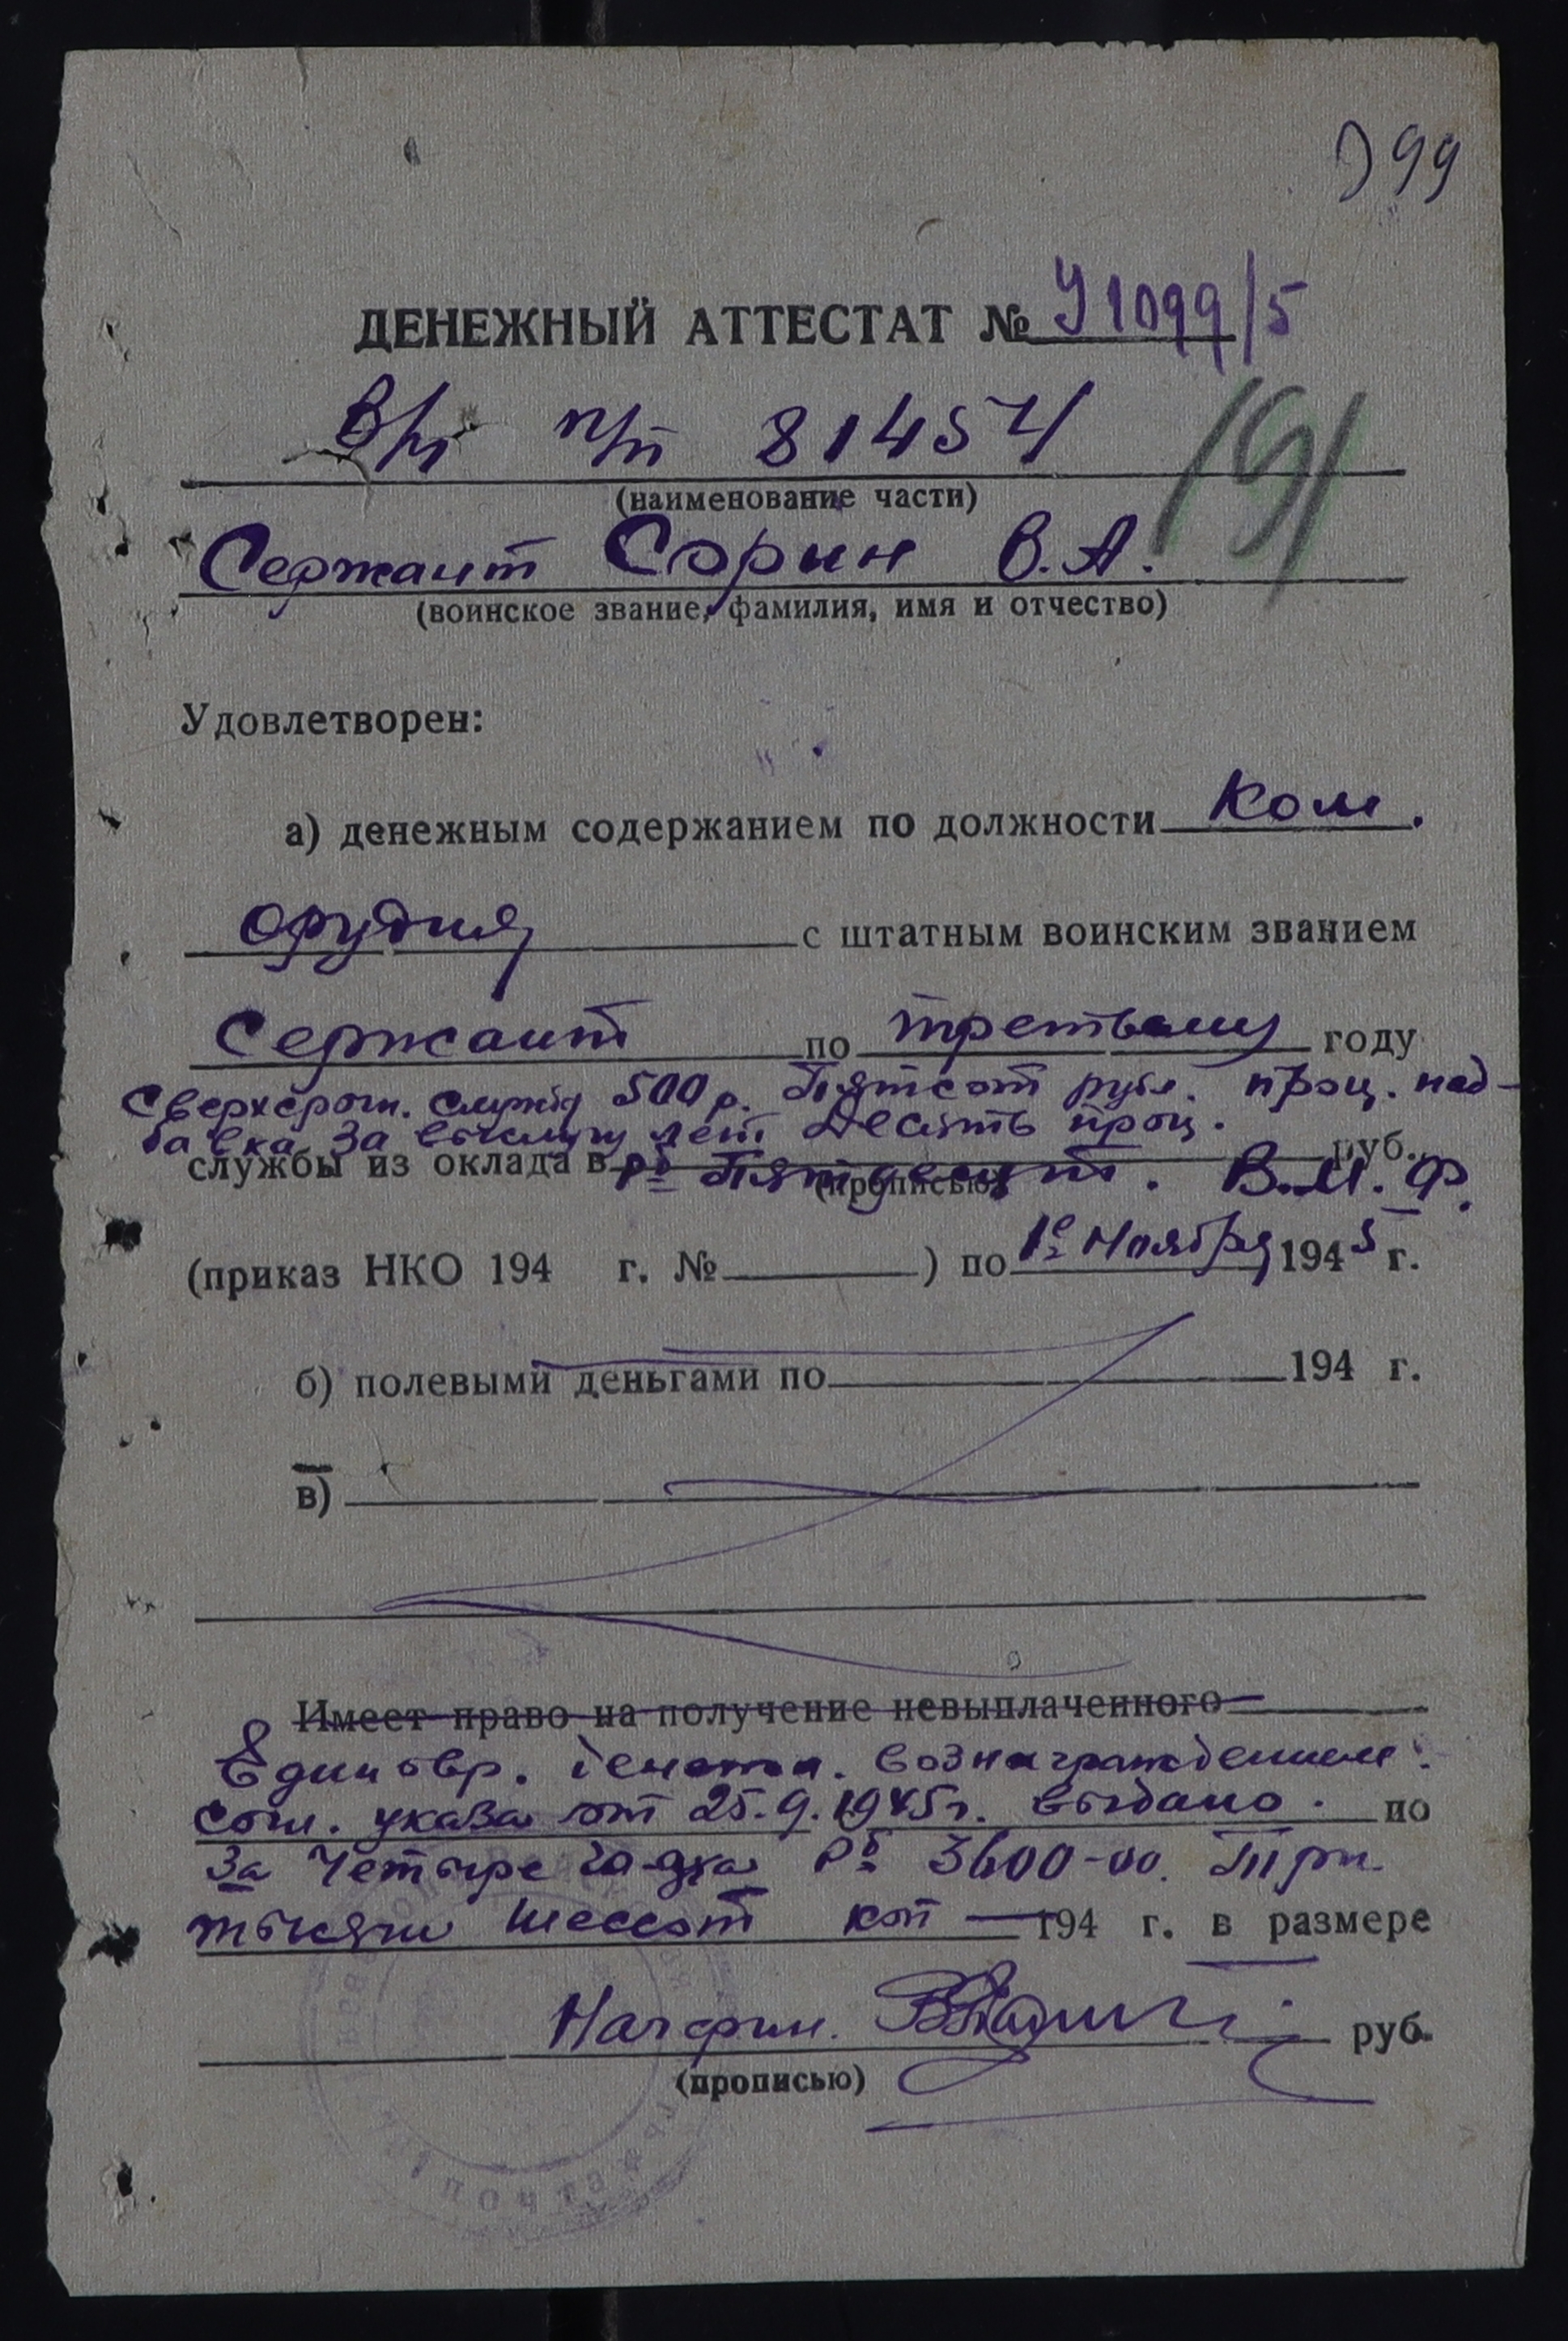 399
ДЕНЕЖНЫЙ АТТЕСТАТ № У1099/5
В/ч п/п 81454
191
(наименование части)
Сержант Сорин В.А.
(воинское звание, фамилия, имя и отчество)
Удовлетворен:
а) денежным содержанием по должности Ком.
орудия с штатным воинским званием
Сержант по третьему году
Сверхсрочн. службы 500 р. Пятсот рубл. проц. над-
бавка за выслугу лет Десять проц.
службы из оклада в рб Пятдесят. руб., В.И.Ф.
(прописью)
(приказ НКО 194 г. № ) по 1е Ноября 1945 г.
б) полевыми деньгами по 194 г.
в)
Имеет право на получение невыплаченного
Единовр. денежн. вознаграждением
согл. указа от 25.9.1945г. выдано. по
за Четыре годка Рб 3600-00. Три
тысячи шессот коп — 194 г. в размере
Начфин. руб.
(прописью)